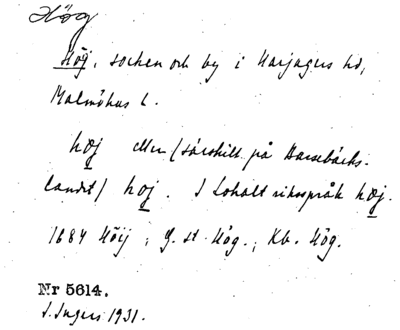 Hög
Hög, socken och by i Harjagers hd,
Malmöhus l.
høj eller (särskilt på Barsebäcks-
landet) hoj. I lokalt riksspråk høj.
1684 Höij; G. st. Hög.; Kb. Hög.
Nr 5614.
I. Ingers 1931.